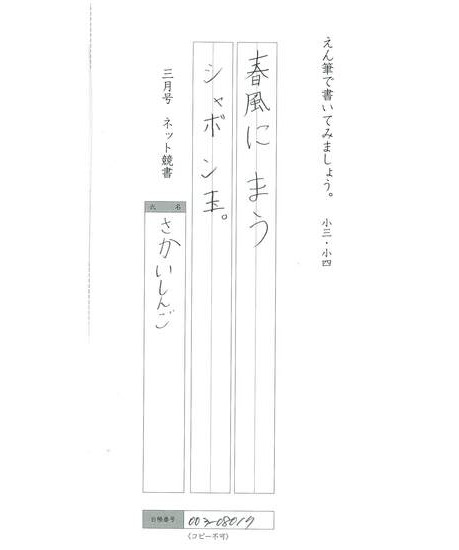 えん筆で書いてみましょう。 小三・小四
春風に まう
シャボン玉。
三月号 ネット競書
氏 名
さかいしんご
(コピー不可)